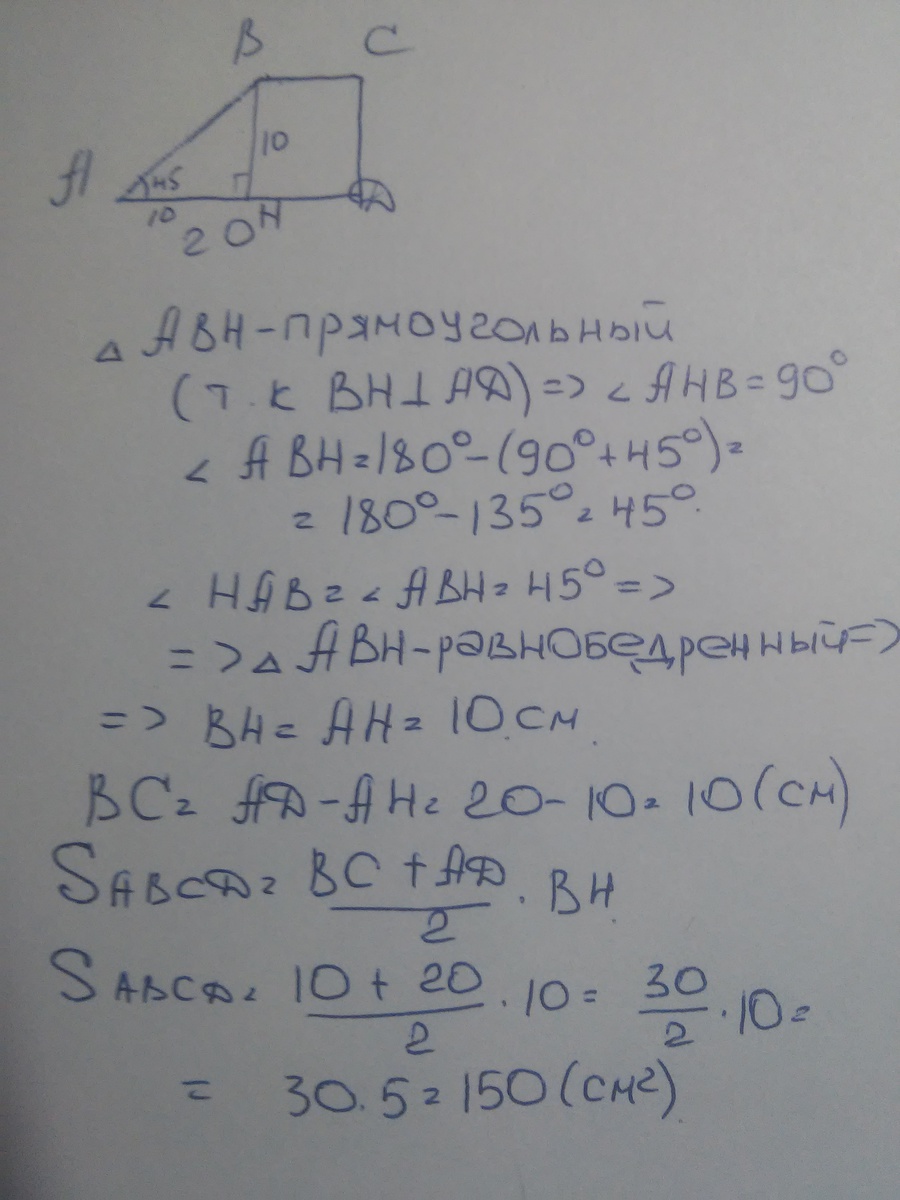 B C
10
A 45 D
10 H
20
△ ABH-прямоугольный
(т.к BH⊥AD) => ∠AHB=90°
∠ABH=180°-(90°+45°)=
= 180°-135°=45°.
∠HAB=∠ABH=45° =>
=> △ ABH-равнобедренный=>
=> BH= AH= 10.см.
BC= AD-AH= 20-10= 10(см)
S ABCD= BC+AD/2 · BH
S ABCD= 10+20/2 · 10= 30/2 · 10=
= 30.5=150(см²)